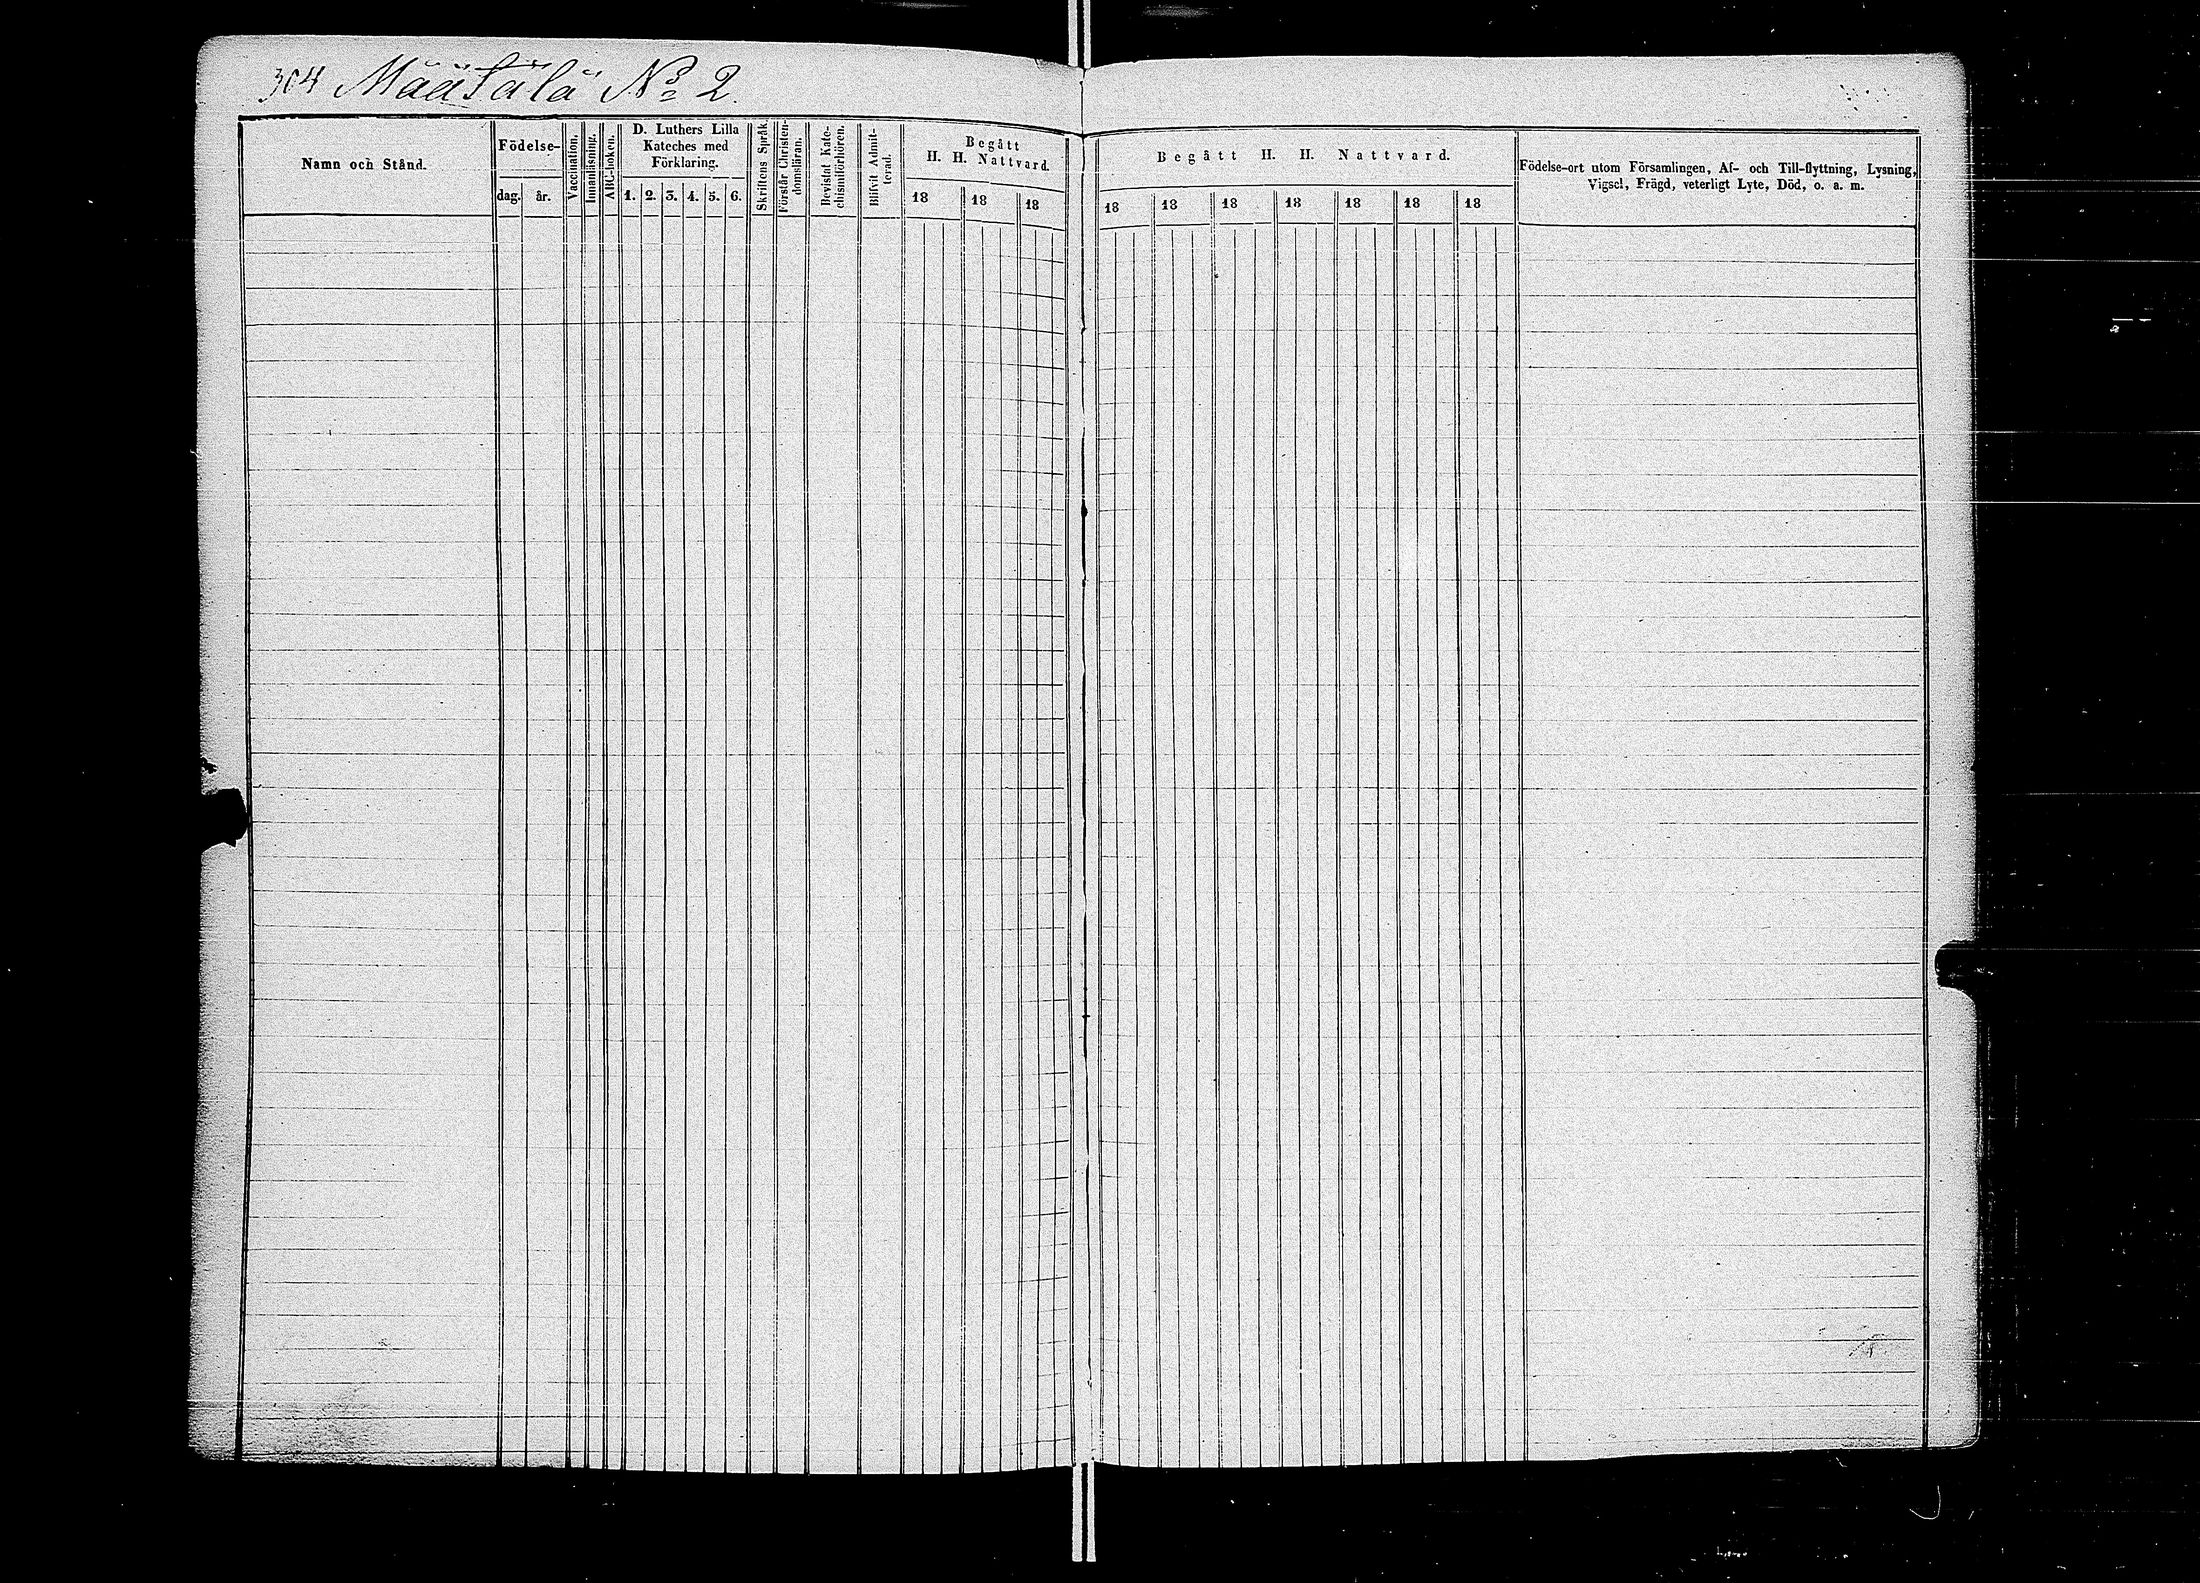 304 Määtälä No 2.
Namn och Stånd.
Födelse-
dag. år.
Vaccination.
Innanläsning.
ABC-boken.
D. Luthers Lilla
Kateches med
Förklaring.
1. 2. 3. 4. 5. 6.
Skriftens Språk.
Förstår Christen-
domsläran.
Bevistat Kate-
chismiförhören.
Blifvit Admit-
terad.
Begått
H. H. Nattvard.
18 18 18
Begått H. H. Nattvard.
18 18 18 18 18 18 18
Födelse-ort utom Församlingen, Af- och Till-flyttning, Lysning,
Vigsel, Frägd, veterligt Lyte, Död, o. a. m.